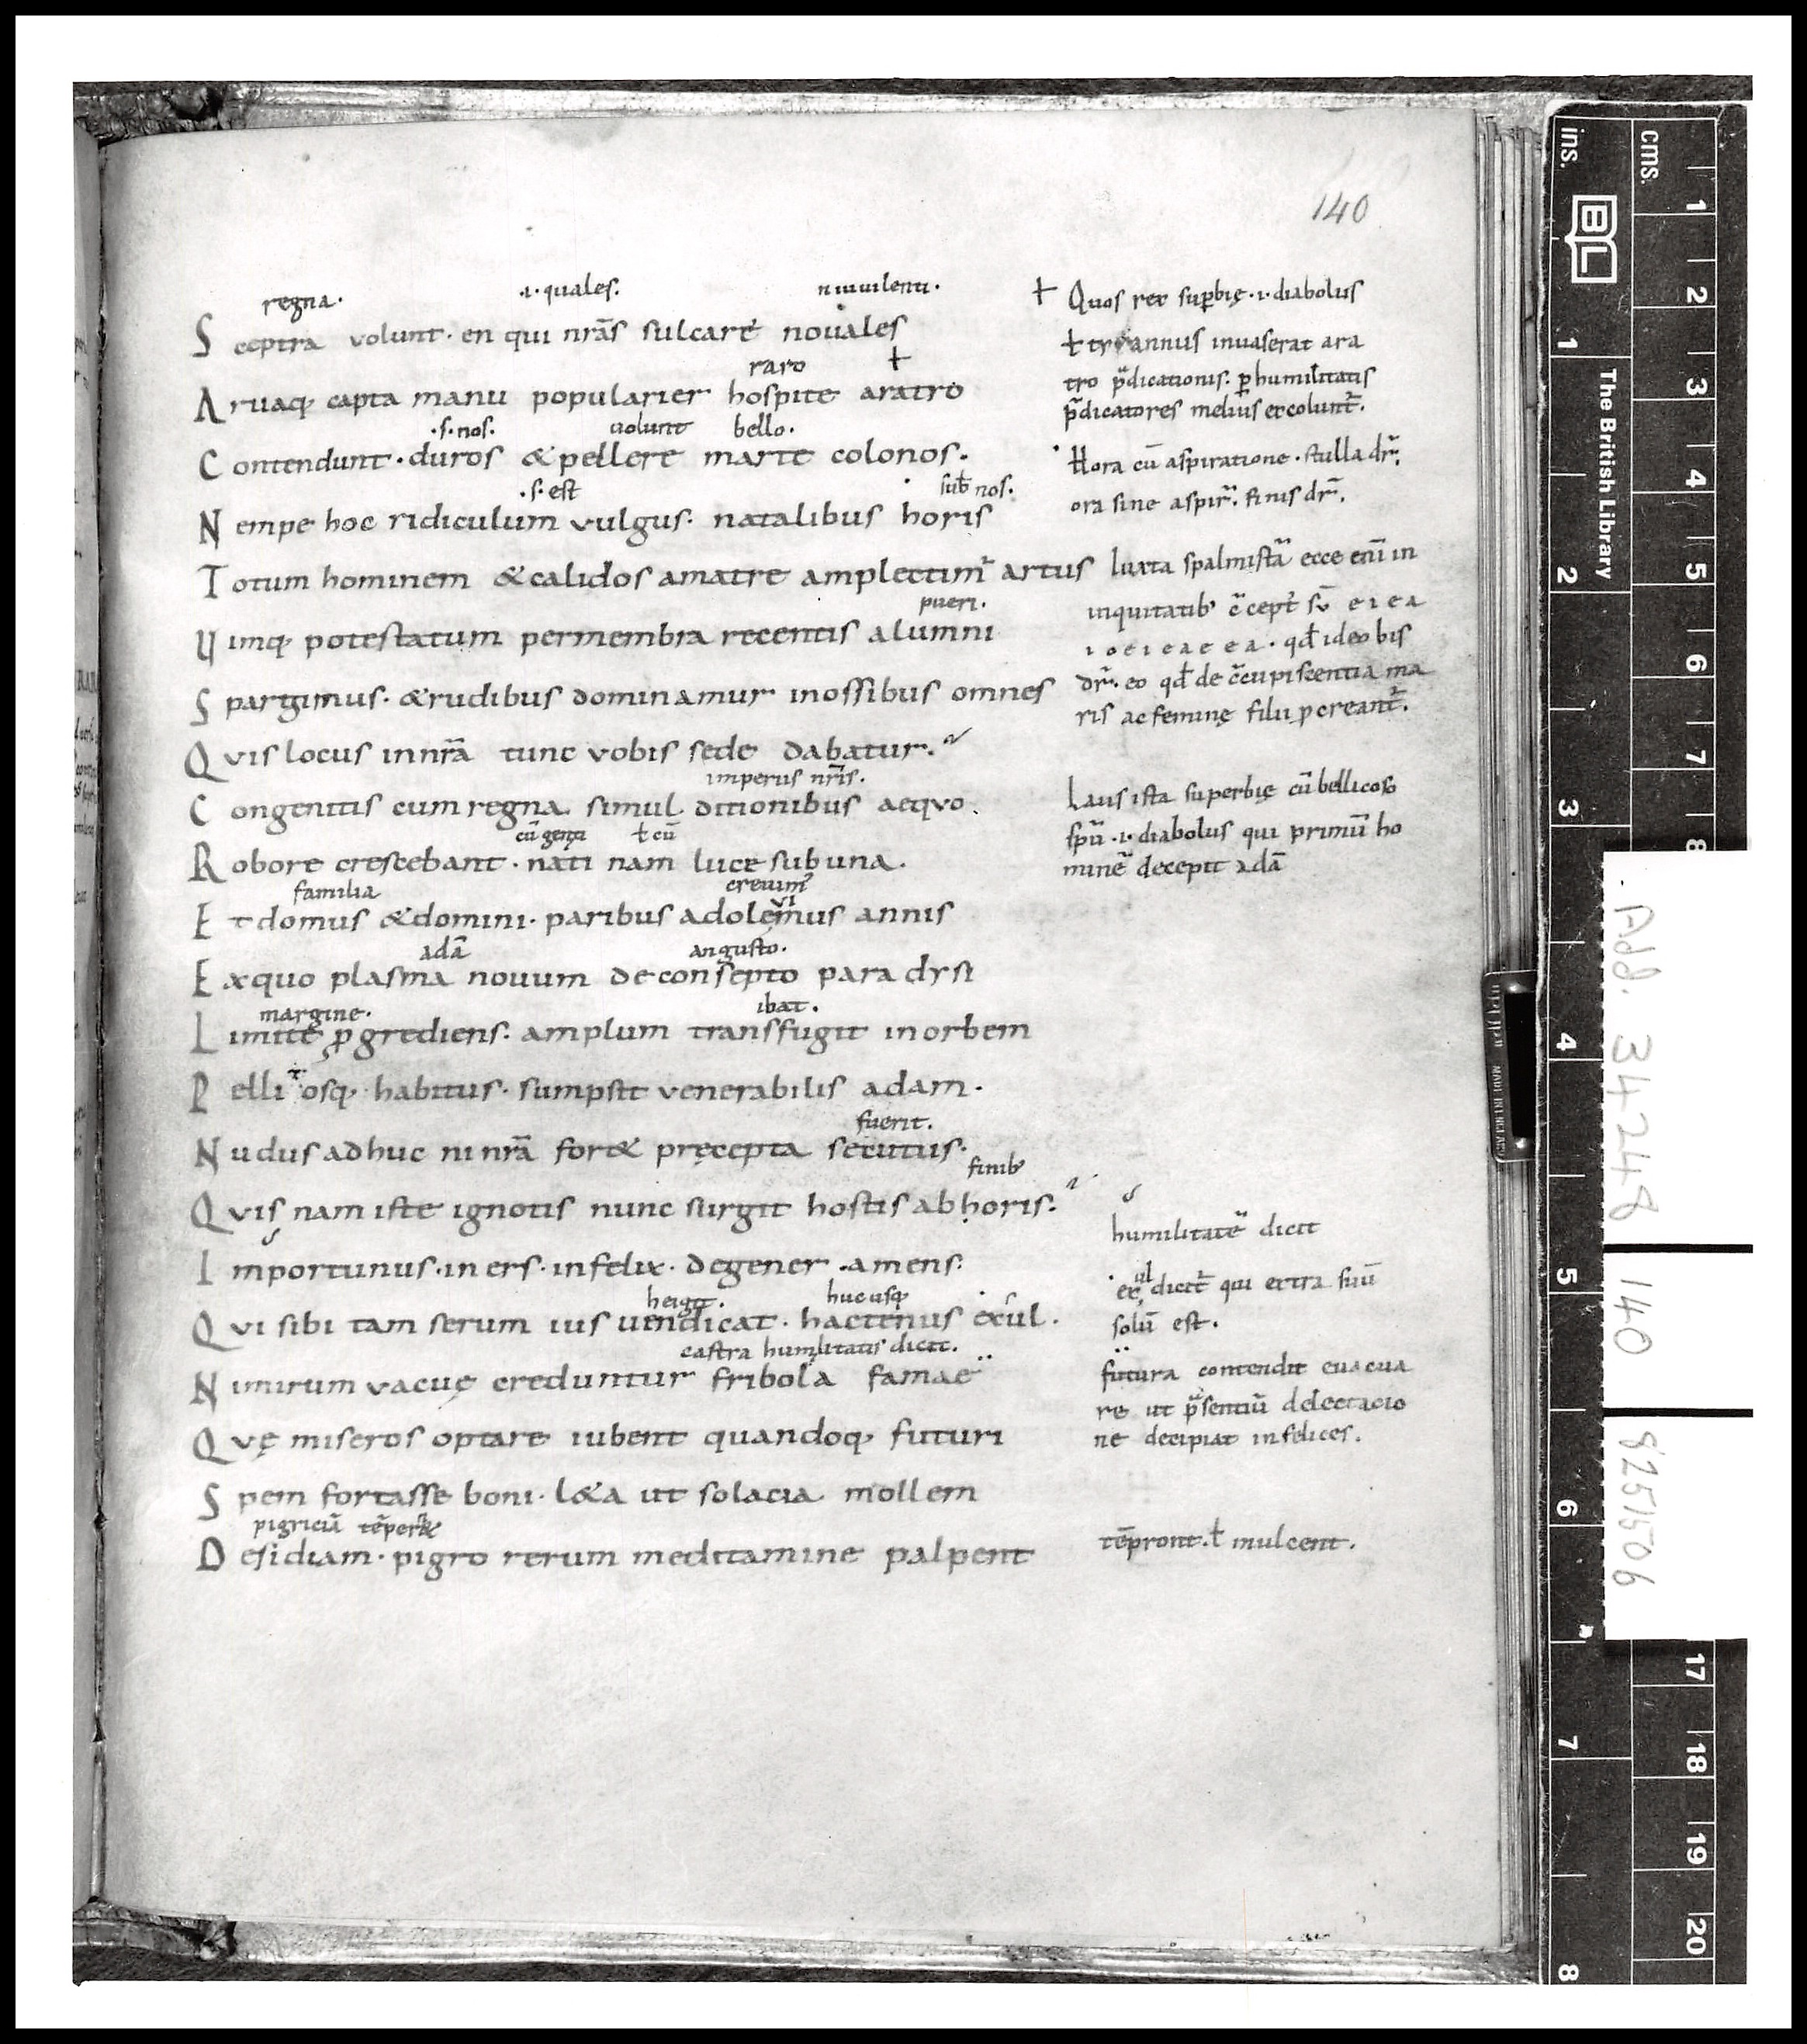 140
regna· ·i·quales·
Sceptra volunt· en qui nr̄ās sulcare nouales
raro +
Aruaq; capta manu popularier hospite aratro
·s·nos· uolunt bello·
Contendunt· duros &pellere marte colonos·
·s·est sub̄ nos·
Nempe hoc ridiculum vulgus· natalibus horis
Totum hominem &calidos amatre amplectim̄ artus
pueri·
Vimq; potestatum permembra recentis alumni
Spargimus· &rudibus dominamur inossibus omnes
Qvis locus innr̄ā tunc vobis sede dabatur·
imperiis nr̄is·
Congenitis cum regna simul ditionibus aeqvo·
cū geniti ł cū
Robore crescebant· nati nam luce sub una·
familia creuim᷒
vi
Et domus &domini· paribus adolemus annis
adā angusto·
Exquo plasma novum de consepto paradysi
margine· ibat·
Limite ꝓgrediens· amplum transfugit in orbem
Pelli tosq; habitus· sumpsit venerabilis adam·
fuerit·
Nudus adhuc ni nr̄ā for& pręcepta secutus·
finib;
Qvis nam iste ignotis nunc surgit hostis ab horis·
Inportunus· iners· infelix· degener· amens·
hucusq;
Qvi sibi tam serum ius uendicat· hactenus exul·
castra humilitatis dicit·
Nimirum vacuę creduntur fribola famae
Qvę miseros optare iubent quandoq; futuri
Spem fortasse boni· l&a ut solacia mollem
pigriciā tēper&
Desidiam· pigro rerum meditamine palpent
+ Quos rex suꝑbię·i·diabolus
ł tyrannus inuaserat ara
tro p̄dicationis· ꝑ humilitatis
p̄dicatores melius excolunt̄·
Hora cū aspiratione· stulla dr̄·
ora sine aspir̄· finis dr̄·
Iuxta spalmistā ecce enī in
iniquitatib; c̄cept̄ sū e i e a
i o e i e a e e a · qd̄ ideo bis
dr̄· eo qd̄ de c̄cupiscentia ma
ris ac feminę filii ꝓcreant̄·
Laus ista superbię cū bellicoso
spū·i·diabolus qui primū ho
minē decepit adā
humilitatē dicit
exul dicit̄ qui extra suū
solū est·
futura contendit euacua
re ut p̄sentiū delectacio
ne decipiat infelices·
tēpront· ł mulcent·
ins. cms.
BL The British Library
1 2 3 4 5 6 7 8
1 2 3 4 5 6 7 8 17 18 19 20
Add. 34248 140 825/506